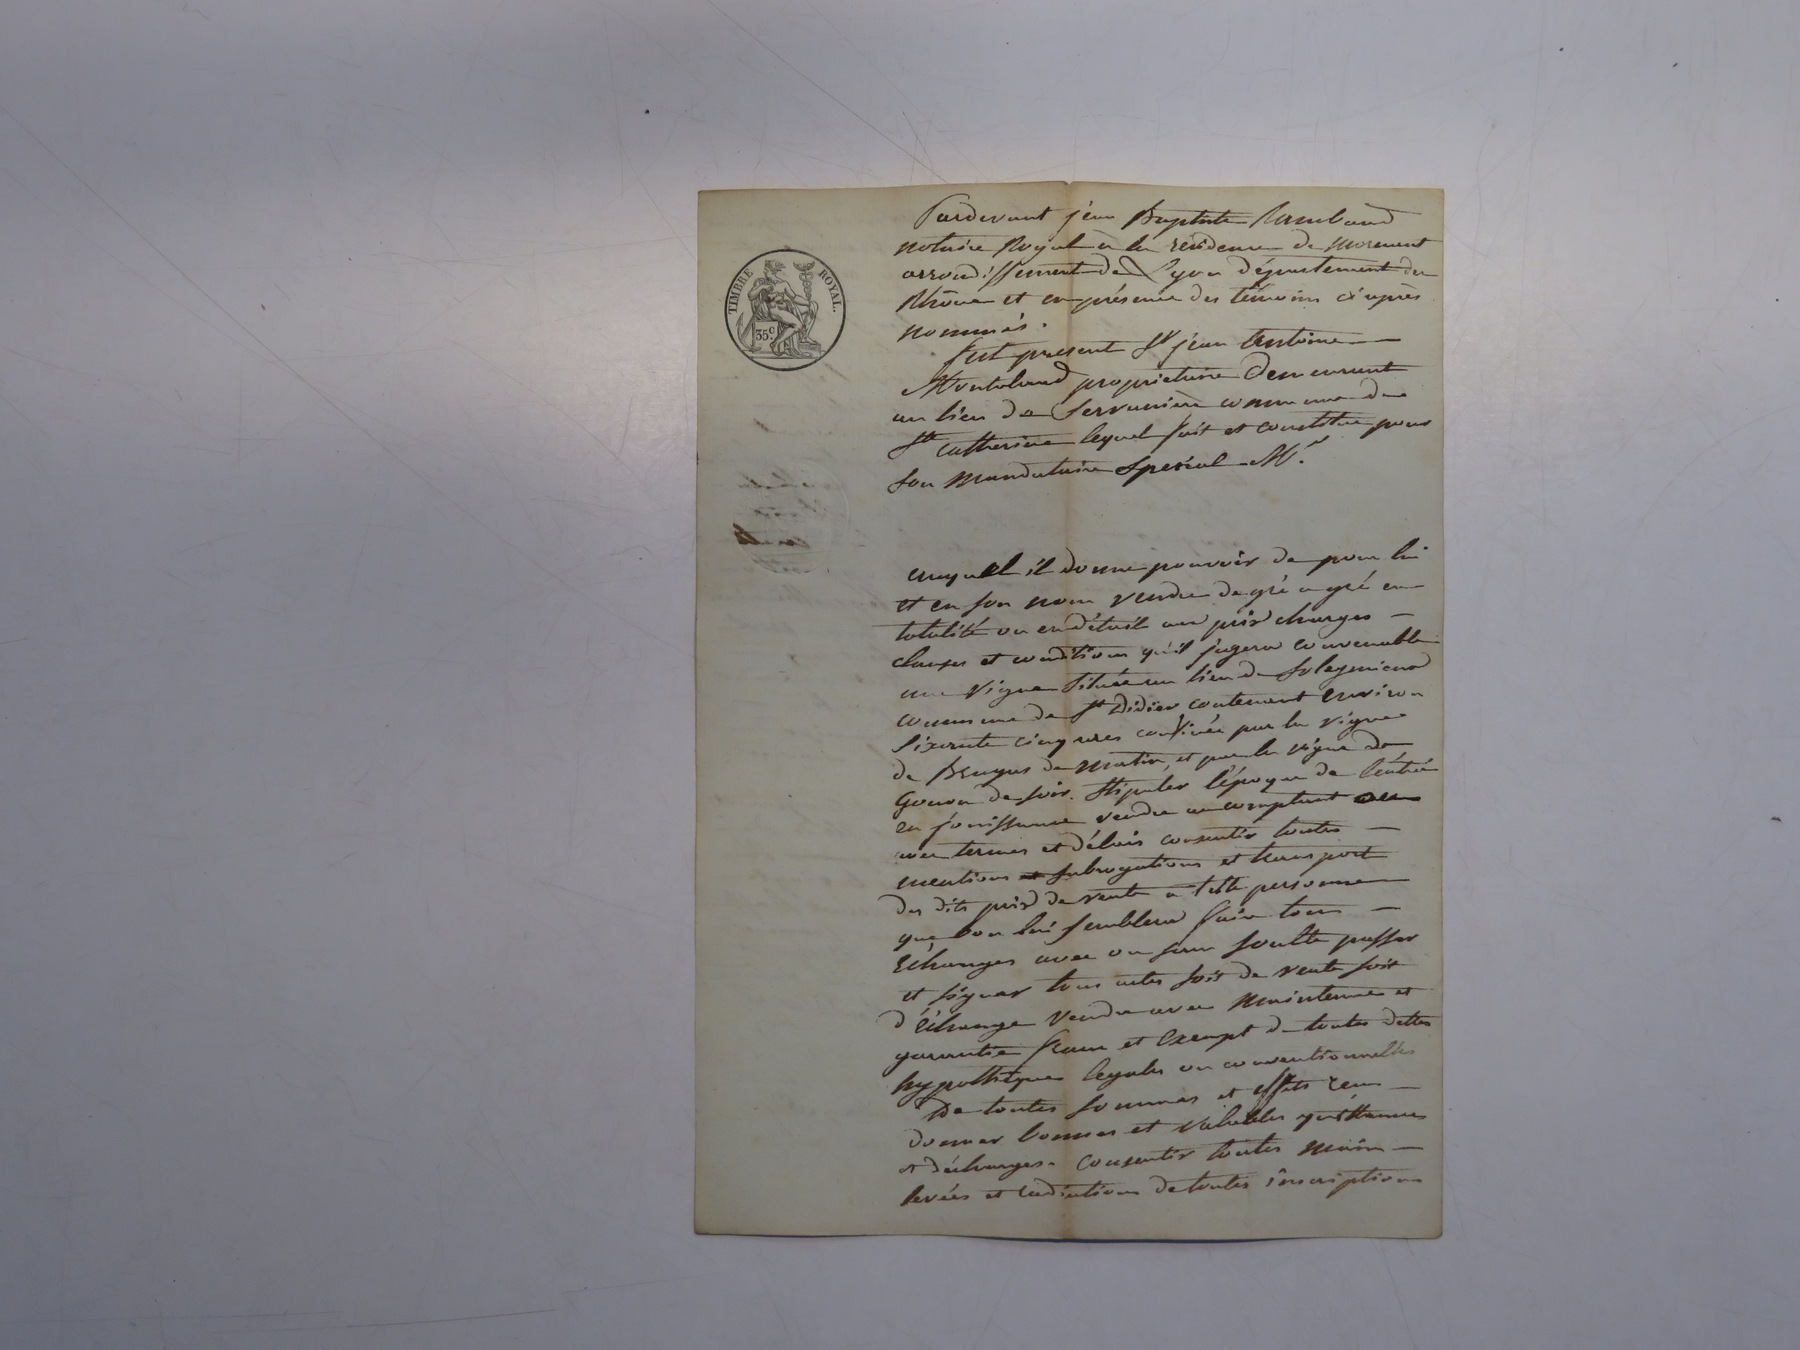 TIMBRE ROYAL.
35.c
Pardevant jean Baptiste Rambaud
notaire Royal à la résidence de mornant
arrondissement de Lyon département du
Rhône et en présence des témoins ci après
nommés.
fut present Sr jean Antoine
propriétaire demeurant
au lieu de commune de
Ste catherine lequel fait et constitue pour
son mandataire spécial Mr.
auquel il donne pouvoir de pour lui
et en son nom vendre de gré a gré en
totalité ou en détail au prix charges
clauses et conditions qu'il jugera convenable
une vigne située au lieu de
commune de St Didier contenant environ
soixante cinq ares confinée par la vigne
de de matin, et par la vigne de
de soir. Stipuler l'époque de l'entrée
en jouissance vendre au comptant ou
avec termes et délais consentir toutes
mentions subrogations et transport
des dits prix de vente a telle personne
que bon lui semblera faire tous
échanges avec ou sans soulte passer
et signer tous actes soit de vente soit
d'échange vendre avec maintenue et
garantie franc et exempt de toutes dettes
hypothèques legales ou conventionnelles
De toutes sommes et effets recus
donner bonnes et valables quittances
et décharges. consentir toutes main
levées et radiations de toutes inscriptions